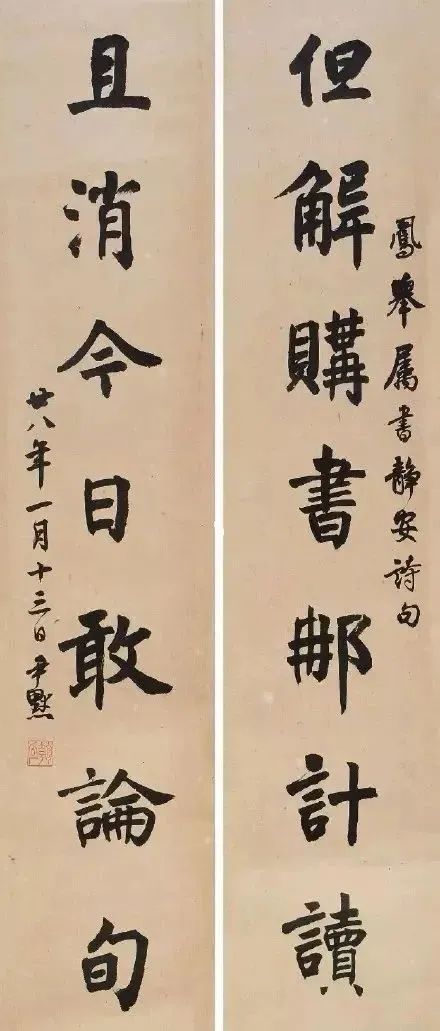 鳳舉属書静安詩句
但解購書那計讀
且消今日敢論旬
廿八年一月十三日尹默